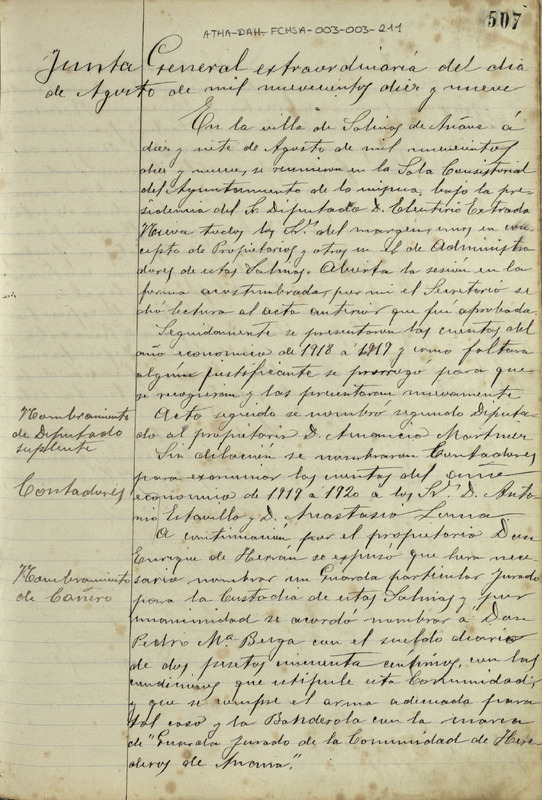 507
ATHA-DAH-FCHSA-003-003-211
Junta General extraordinaria del dia
de Agosto de mil nuevecientos diez y nueve
En la villa de Salinas de Añana á
diez y siete de Agosto de mil nuevecientos
diez y nueve, se reunieron en la Sala Consistorial
del Ayuntamiento de la misma, bajo la pre-
sidencia del Sr. Diputado D. Eleuterio Extrada
Nueva todos los Sres. del margen, unos en con-
cepto de Propietarios y otros en el de Administra
dores de estas Salinas. Abierta la sesión en la
forma acostumbrada, por mi el Secretario se
dió lectura al acta anterior que fué aprobada.
Seguidamente se presentaron las cuentas del
año economico de 1918 á 1919 y como faltara
algun justificante se prorrogó para que
se recogieran y las presentaran nuevamente
Acto seguido se nombro segundo Diputa-
do al propietario D. Amancio Martinez
Nombramiento
de Diputado
suplente
Sin dilación se nombraron Contadores
para examinar las cuentas del año
economico de 1919 á 1920 á los Sres. D. Anto-
nio Estavillo y D. Anastasio
Contadores
A continuación por el propietario Don
Enrique de Herrán se expusó que hera nece-
sario nombrar un Guarda particular Jurado
para la Custodia de estas Salinas y por
unanimidad se acordó nombrar á Don
Pedro Ma. Berga con el sueldo diario
de dos pesetas cincuenta centimos, con las
condiciones que estipule esta Comunidad,
y que se compre el arma adecuada para
tal caso y la Banderola con la marca
de "Guarda Jurado de la Comunidad de Here-
deros de Anana".
Nombramiento
de Cañero